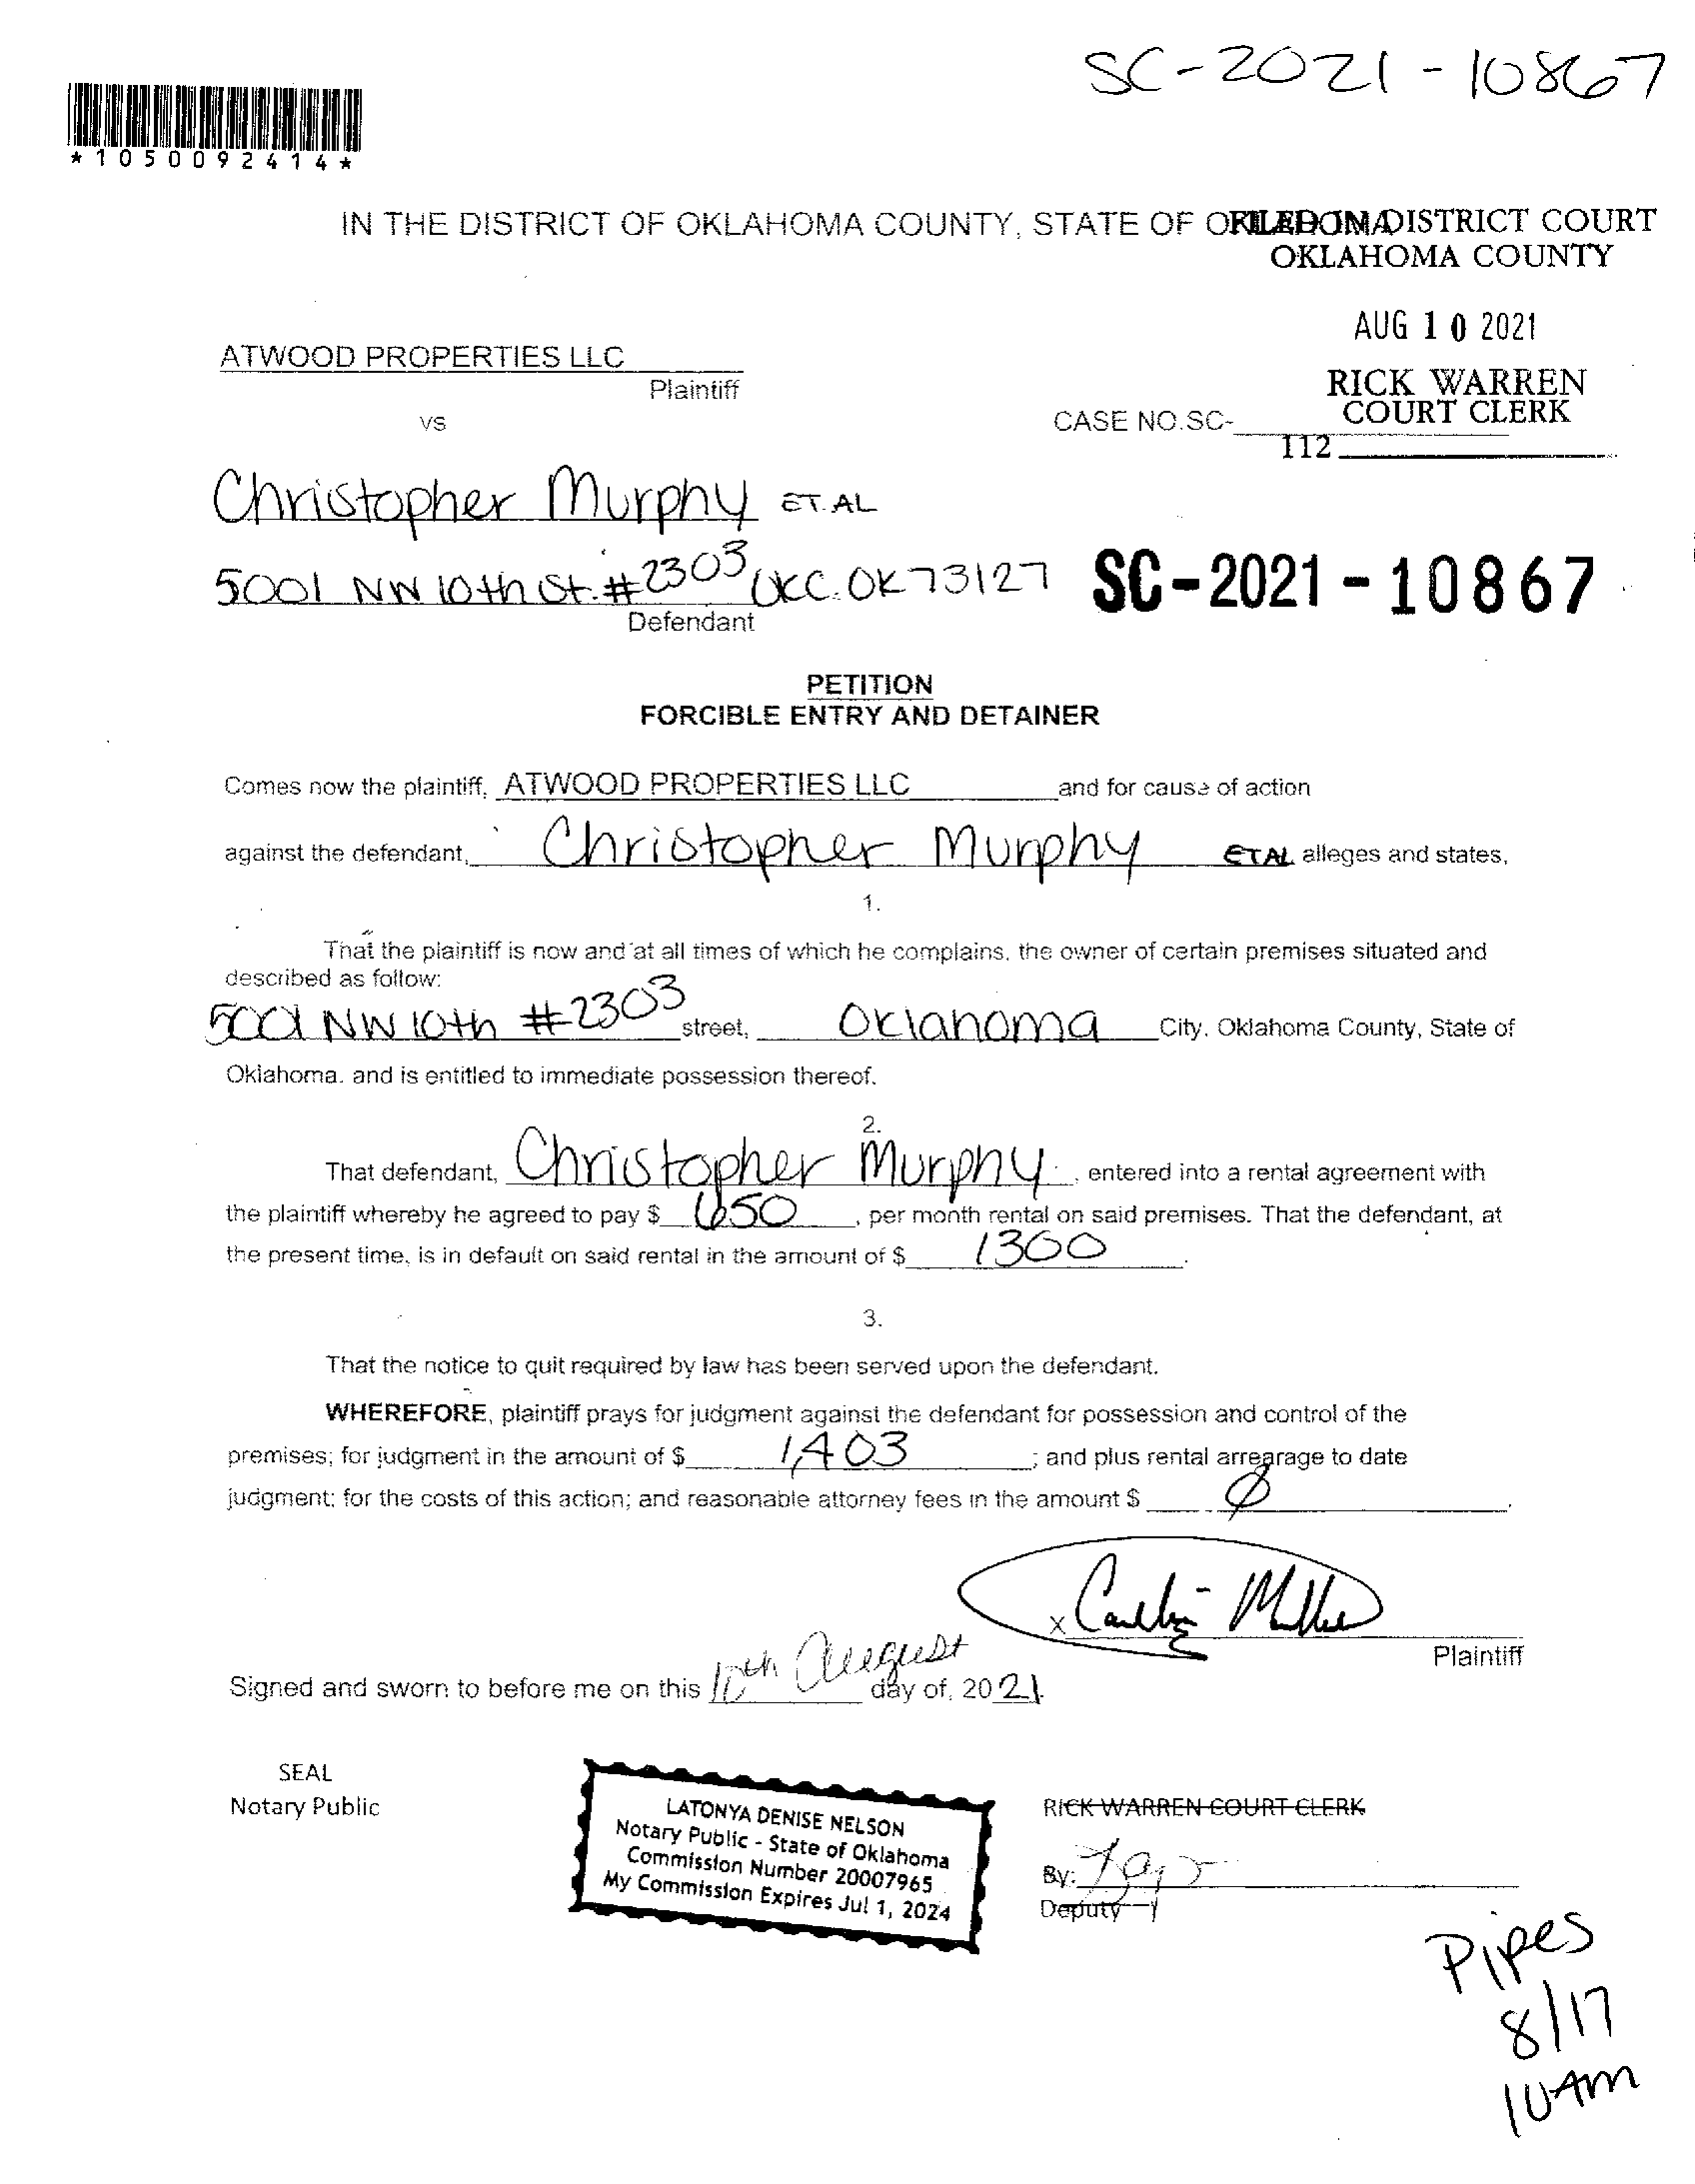 SC-2021-10867
*1050092414*
IN THE DISTRICT OF OKLAHOMA COUNTY, STATE OF OKLAHOMA
FILED IN DISTRICT COURT
OKLAHOMA COUNTY
AUG 10 2021
RICK WARREN
COURT CLERK
112
ATWOOD PROPERTIES LLC
Plaintiff
vs
CASE NO.SC-
Christopher Murphy ET.AL
5001 NW 10th St. #2303 OKC. OK 73127
SC-2021-10867
Defendant
PETITION
FORCIBLE ENTRY AND DETAINER
Comes now the plaintiff, ATWOOD PROPERTIES LLC and for cause of action
against the defendant, Christopher Murphy ETAL alleges and states,
1.
That the plaintiff is now and at all times of which he complains, the owner of certain premises situated and
described as follow:
5001 NW 10th #2303 street, Oklahoma City, Oklahoma County, State of
Oklahoma, and is entitled to immediate possession thereof.
2.
That defendant, Christopher Murphy, entered into a rental agreement with
the plaintiff whereby he agreed to pay $ 650, per month rental on said premises. That the defendant, at
the present time, is in default on said rental in the amount of $ 1300.
3.
That the notice to quit required by law has been served upon the defendant.
WHEREFORE, plaintiff prays for judgment against the defendant for possession and control of the
premises; for judgment in the amount of $ 1,403; and plus rental arrearage to date
judgment; for the costs of this action; and reasonable attorney fees in the amount $ Ø.
X
Plaintiff
Signed and sworn to before me on this 10th August day of, 2021.
SEAL
Notary Public
LATONYA DENISE NELSON
Notary Public - State of Oklahoma
Commission Number 20007965
My Commission Expires Jul 1, 2024
RICK WARREN COURT CLERK
By:
Deputy
Pipes
8/17
10Am